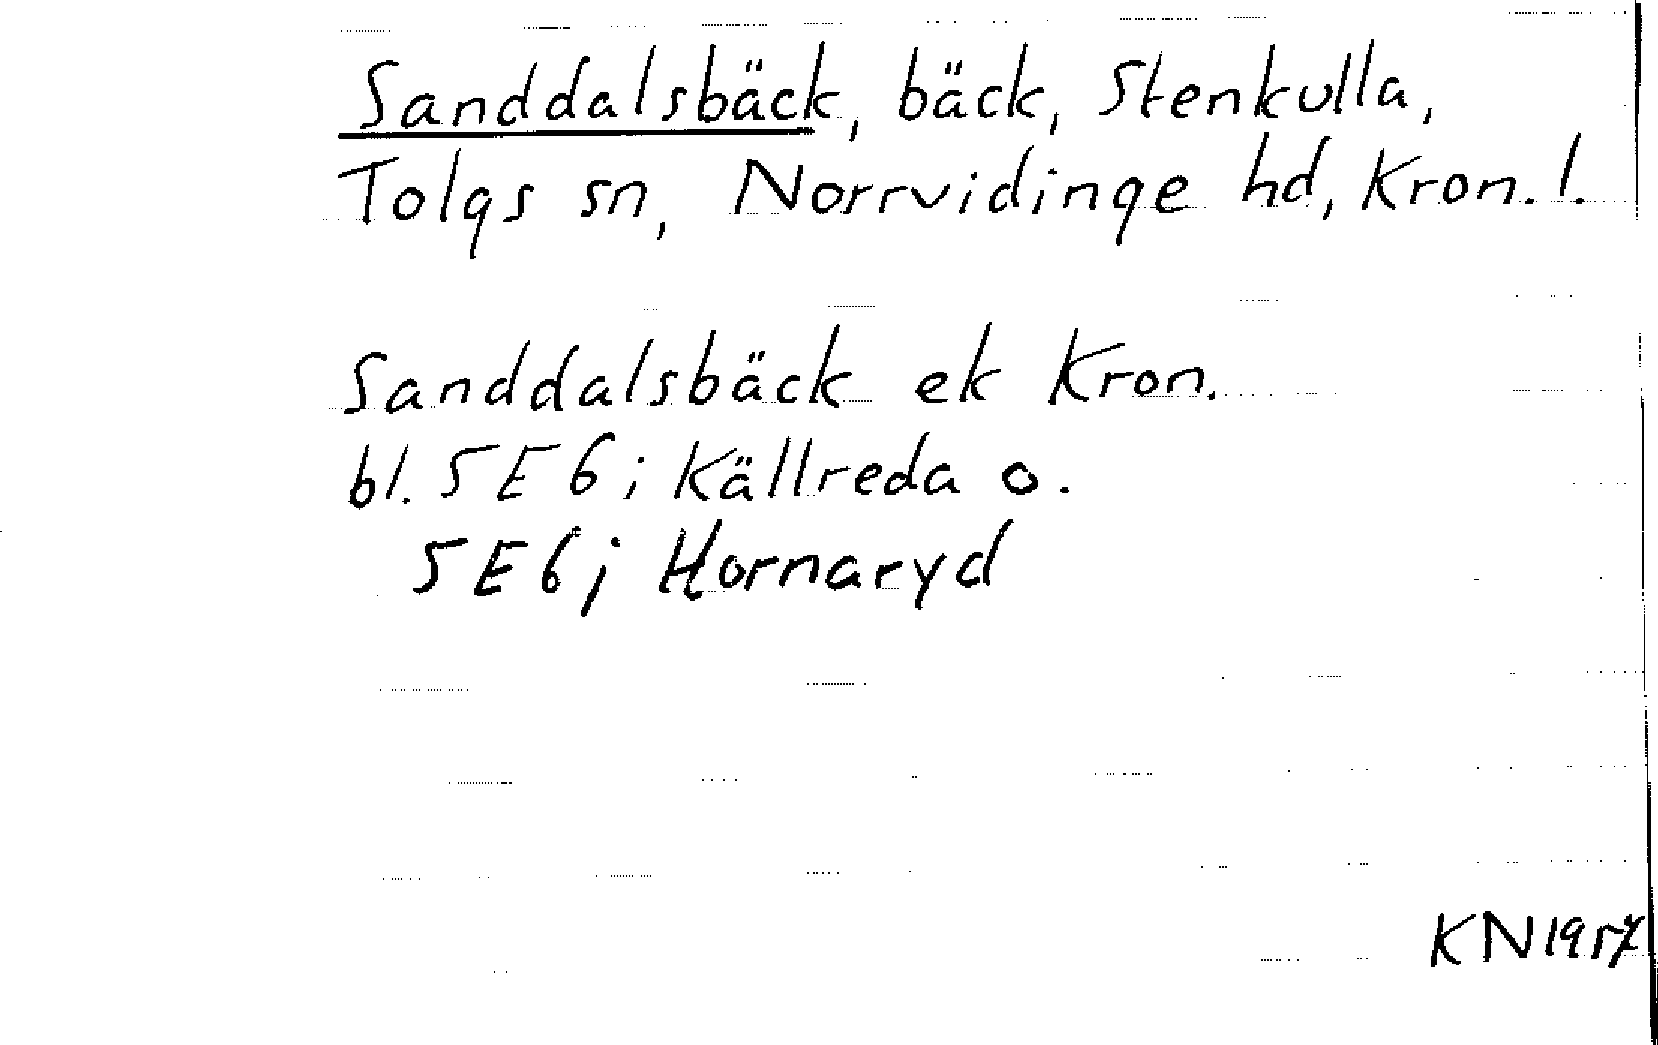 Sanddalsbäck, bäck, Stenkulla,
Tolgs sn, Norrvidinge hd, Kron. l.
Sanddalsbäck ek Kron.
bl. 5E6i Källreda o.
5E6j Hornaryd
KN 1957